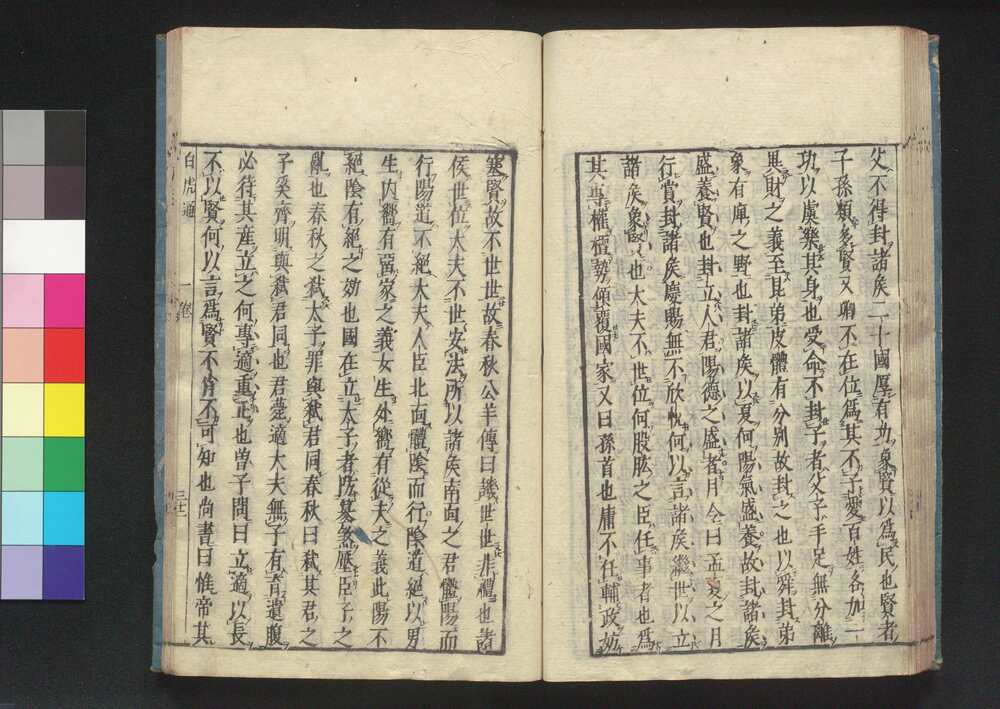 父不得封諸侯二十國厚有功象賢以爲民也賢者
子孫類多賢又卿不在位爲其不子愛百姓各加一
功以虞樂其身也受命不封子者父子手足無分離
異財之義至昆弟皮體有分別故封之也以舜封弟
象有庳之野也封諸侯以夏何陽氣盛養故封諸侯
盛養賢也封立人君陽德之盛者月令曰孟夏之月
行賞封諸侯慶賜無不欣悅何以言諸侯繼世以立
諸侯象賢也大夫不世位何股肱之臣任事者也爲
其專權擅勢傾覆國家又曰孫首也庸不任輔政妨
塞賢故不世世故春秋公羊傳曰譏世世非禮也諸
侯世位大夫不世安法所以諸侯南面之君體陽而
行陽道不絕大夫人臣北面體陰而行陰道絕以男
生内嚮有留家之義女生外嚮有從夫之義此陽不
絕陰有絕之効也國在立太子者防篡煞壓臣子之
亂也春秋之弑太子罪與弑君同春秋曰弑其君之
子奚齊明與弑君同也君薨適大夫無子有育遺腹
必待其産立之何專適重正也曾子問曰立適以長
不以賢何以言爲賢不肖不可知也尚書曰惟帝其
白虎通 一卷 三十二